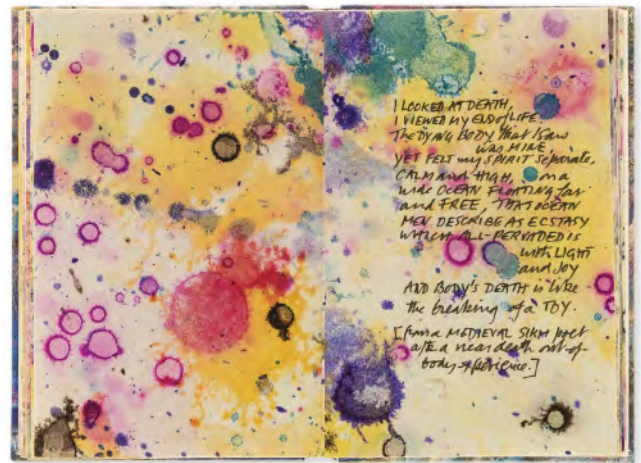 I LOOKED AT DEATH,
I VIEWED MY END of LIFE
The DYING BODY that I saw
was MINE
YET FELT my SPIRIT separate,
CALM and HIGH, on a
wide OCEAN FLOATING far
and FREE, THAT OCEAN
MEN DESCRIBE AS ECSTASY
WHICH ALL-PERVADED IS
with LIGHT
and JOY
AND BODY'S DEATH is like
the breaking of a TOY.
[from a MEDIEVAL SIKH poet
after a near death out-of-
body experience.]